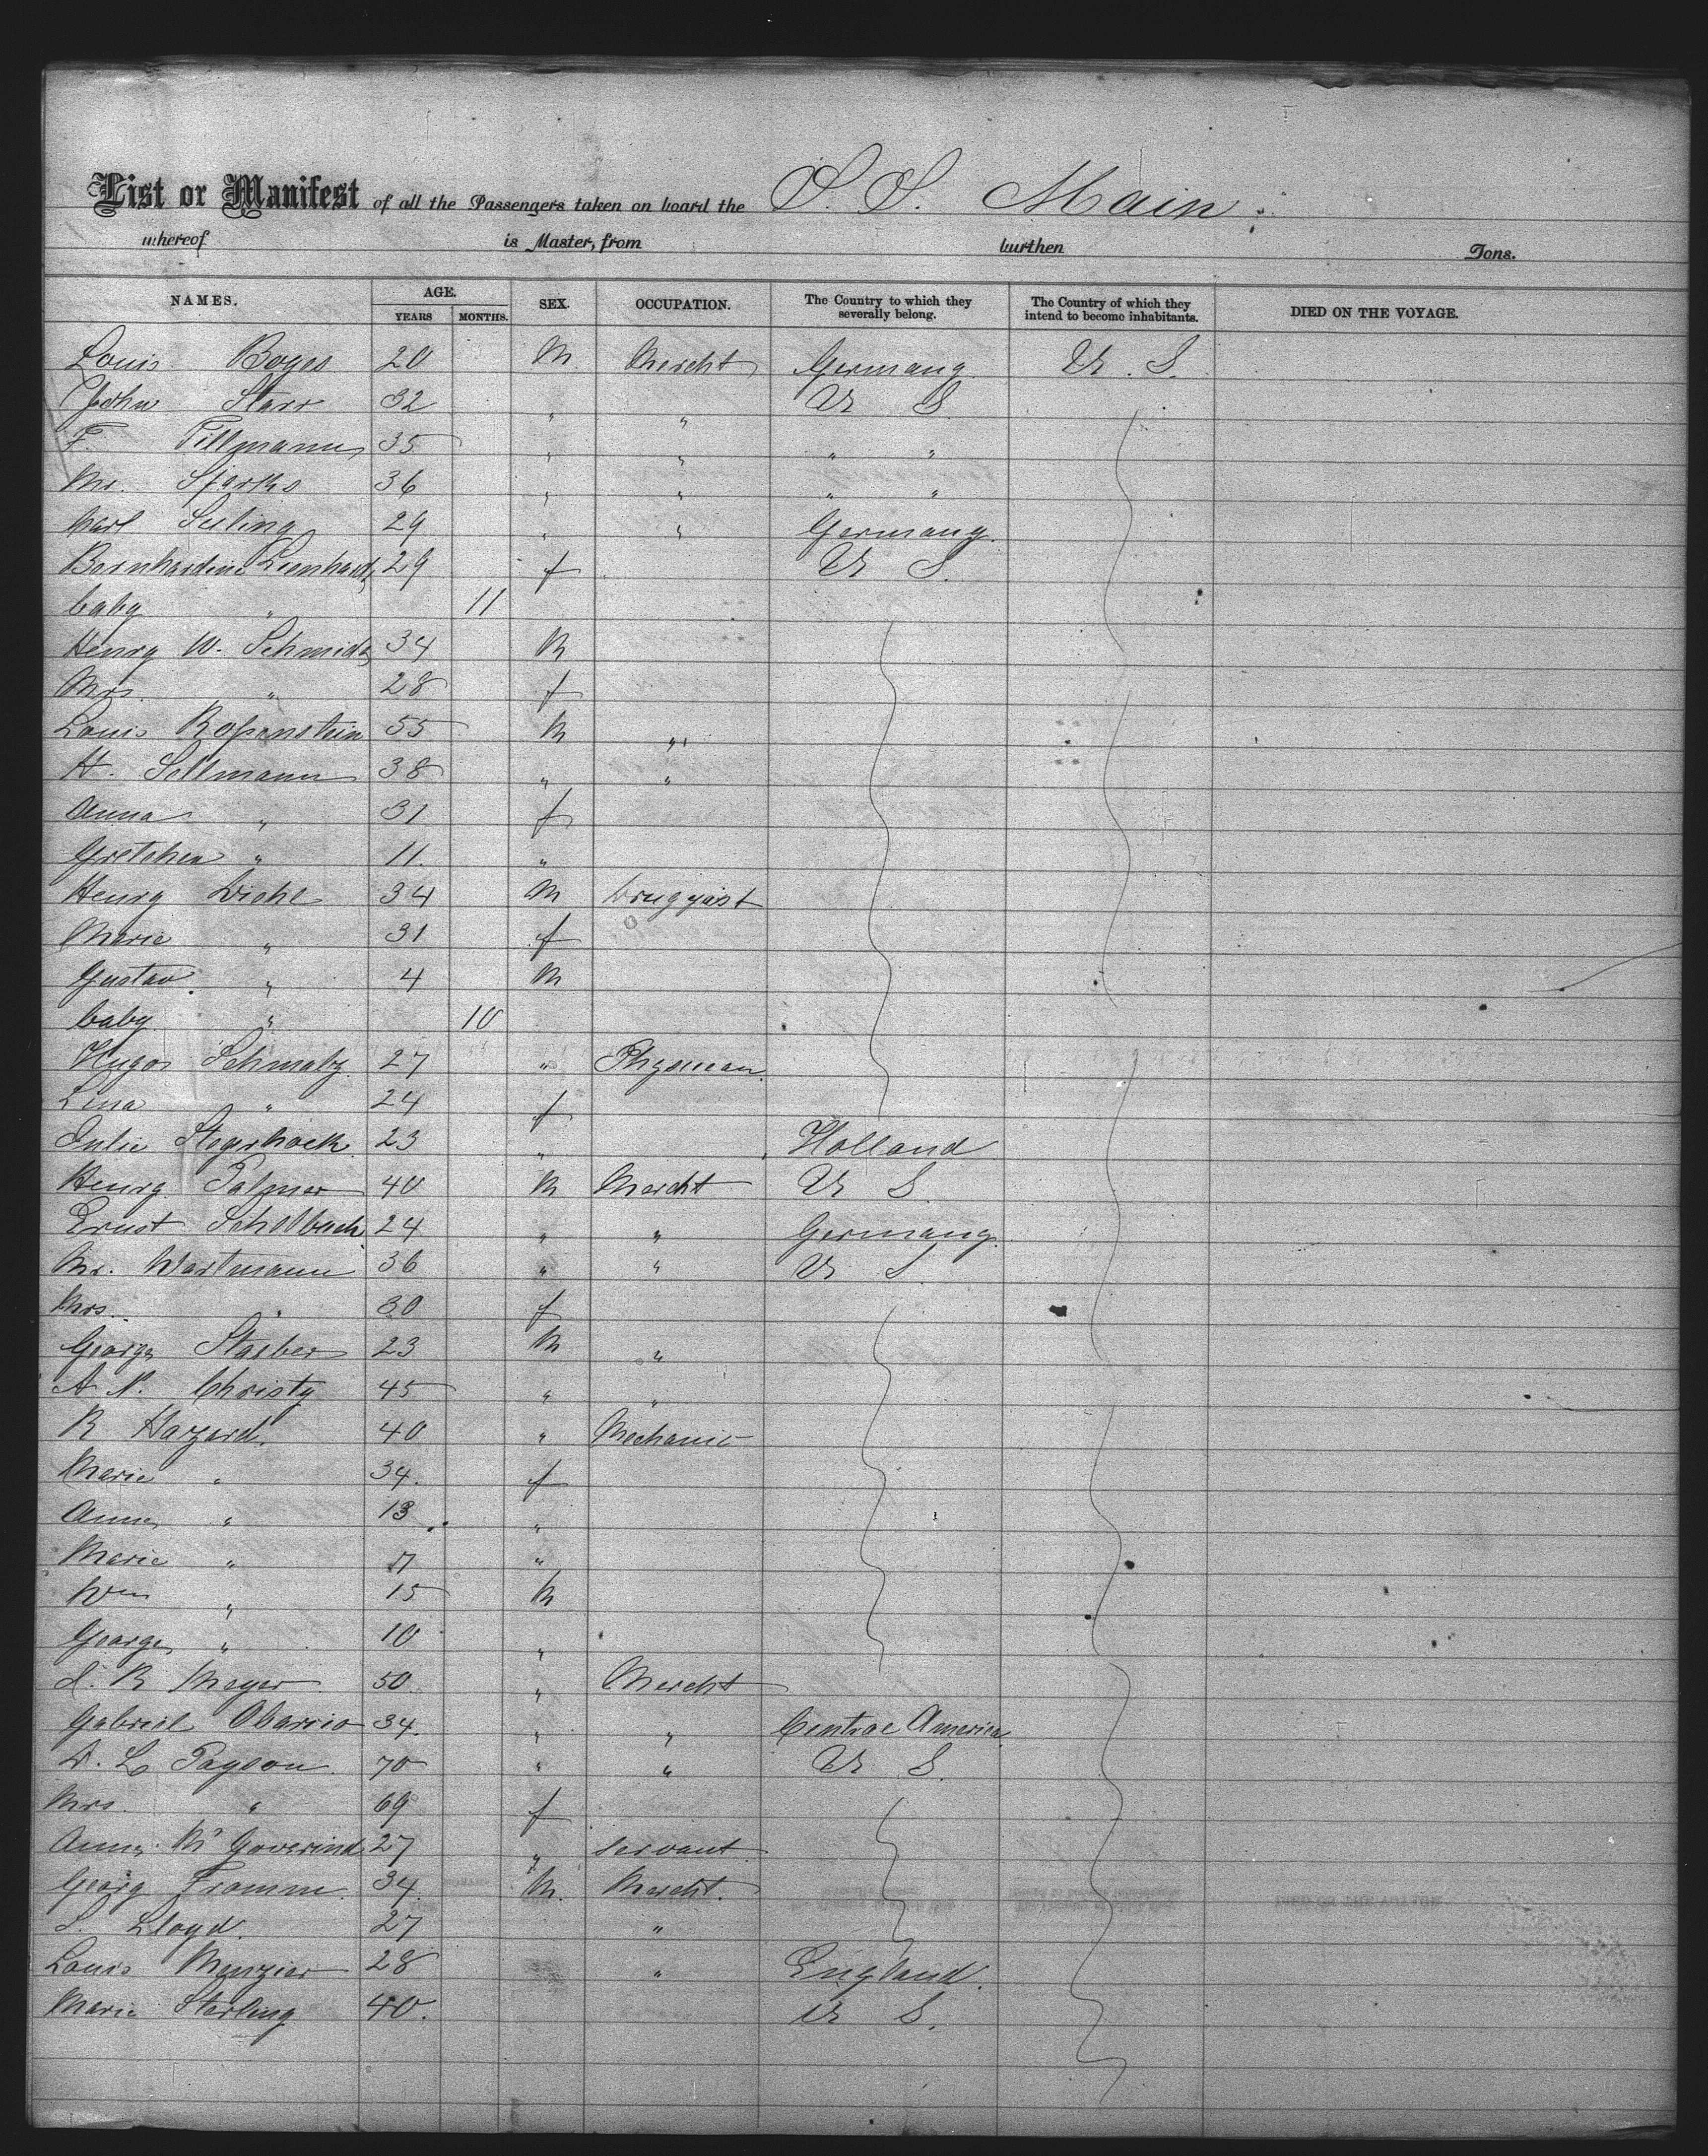 List or Manifest of all the Passengers taken on board the S. S. Main
whereof is Master, from burthen Tons.
NAMES. AGE. YEARS MONTHS. SEX. OCCUPATION. The Country to which they severally belong. The Country of which they intend to become inhabitants. DIED ON THE VOYAGE.
Louis Boyes 20 M Mercht Germany U. S.
John Starr 32 " " U S
F. Tillmann 35 " " " "
Mr. Sparks 36 " " " "
Carl Seiling 29 " " Germany
Bernhardine Lienhard 29 f U S.
baby " 11
Henry W. Schmidt 34 M
Mrs. " 28 f
Louis 55 M "
H. Sellmann 38 " "
Anna " 31 f
Gretchen " 11. "
Henry Diehl 34 M Druggist
Marie " 31 f
Gustav " 4 M
baby " 10
Hugo Schmalz 27 " Physician
Lina " 24 f
Julie 23 " Holland
Henry Palmer 40 M Mercht U S.
Ernst 24 " " Germany
Mr. Wartmann 36 " " U S.
Mrs. " 30 f
George Staiber 23 M "
A. N. Christy 45 " "
R Hazard. 40 " Mechanic
Marie " 34. f
Anna " 13 "
Marie " 7 "
Wm " 15 M
George " 10 "
L. R Meyer 50 " Mercht
Gabriel Obarrio 34. " " Central America
D. L Payson 70 " " U S.
Mrs. " 69 f
Anna Mc 27 " servant
Georg Fromm 34. M. Mercht.
S. Lloyd. 27 "
Louis Menzier 28 " England.
Marie Sterling 40. U S.